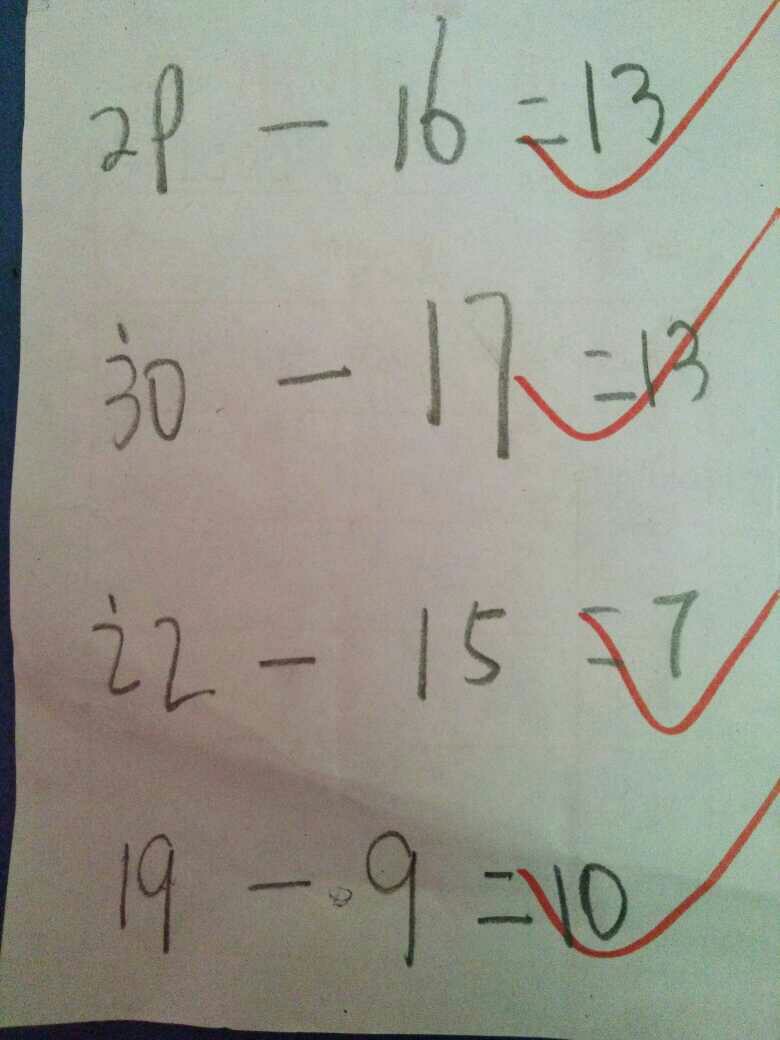 29 - 16 = 13
30 - 17 = 13
22 - 15 = 7
19 - 9 = 10